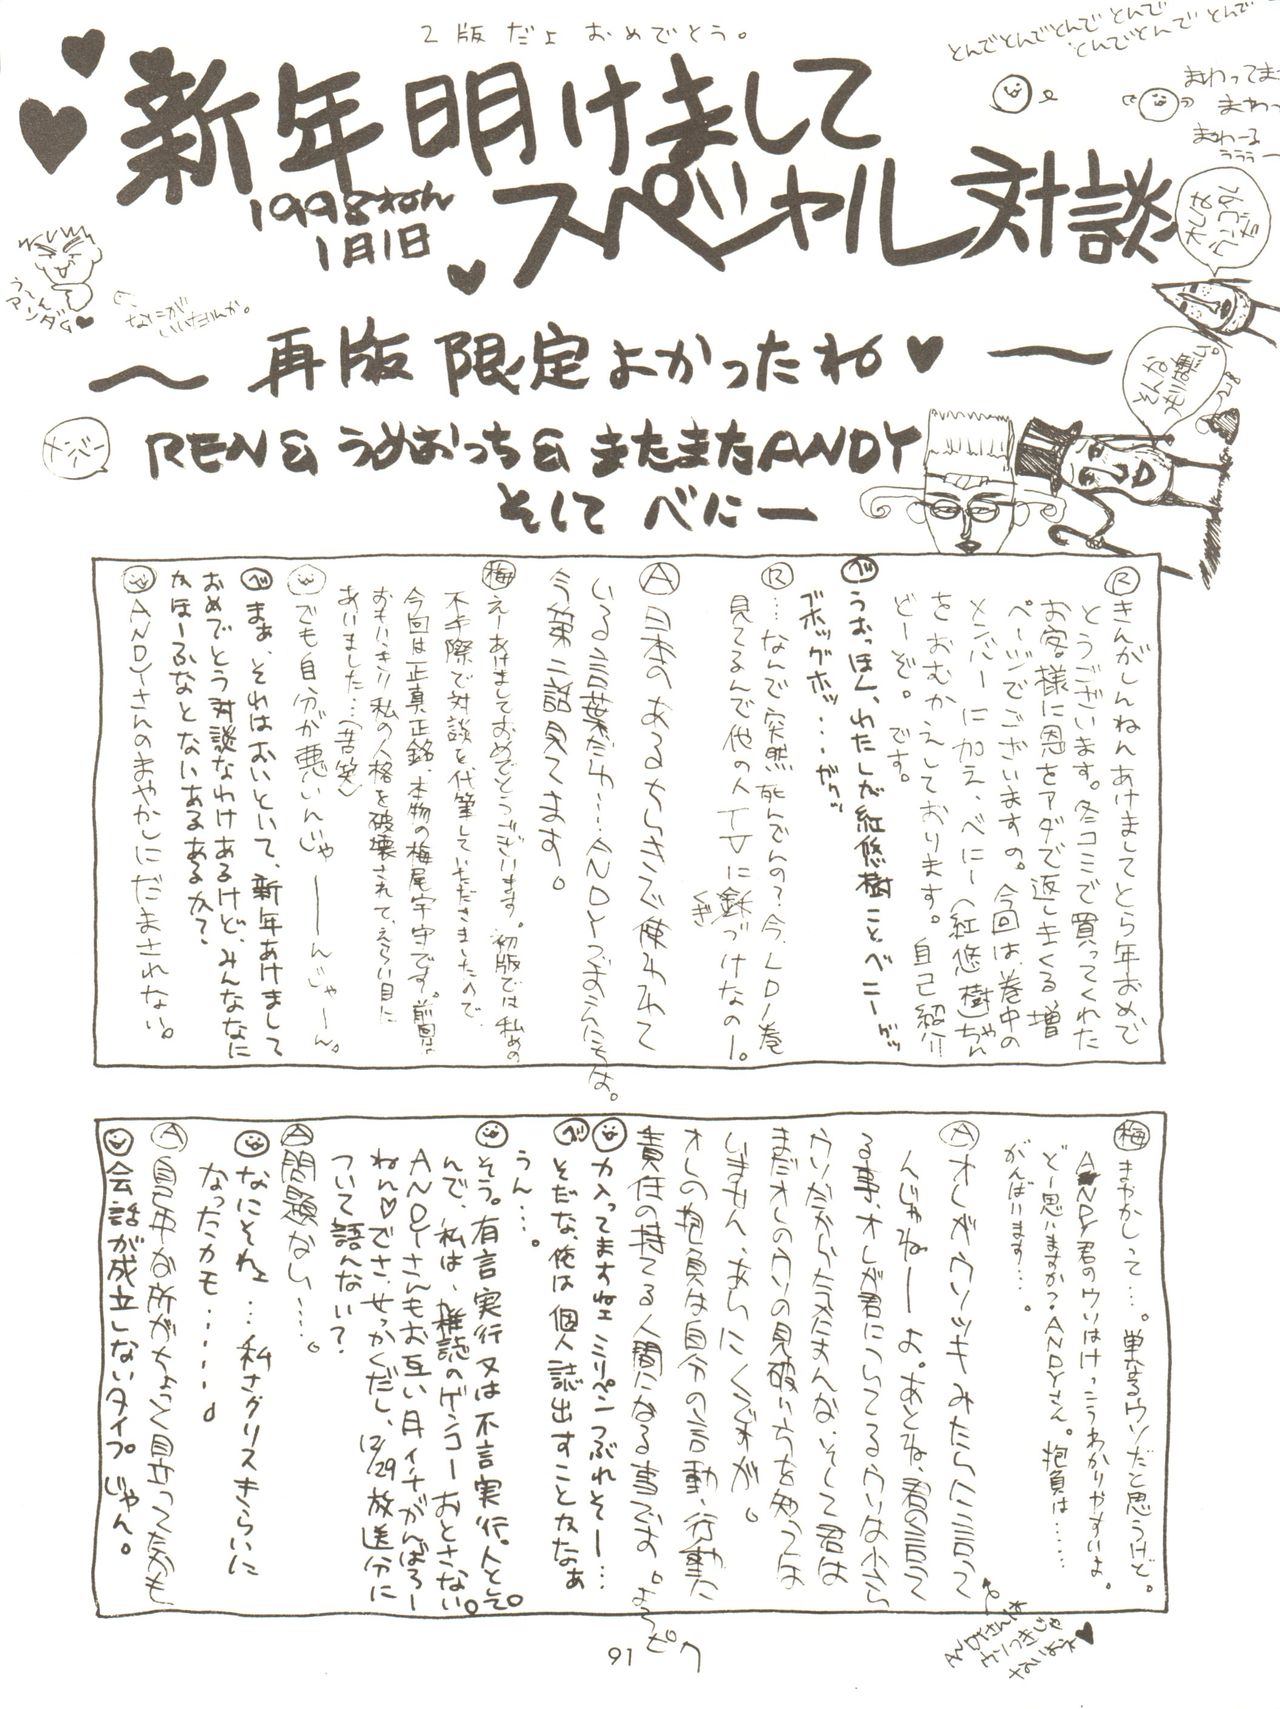 2版だよ おめでとう。
とんでとんでとんでとんで
とんでとんでとんで
まわってま
まわっ
まわーる
ううう
新年明けまして
スペシャル対談
1998ねん
1月1日
う〜ん
マンダム♥
なにが
いいだんか。
〜再版限定よかったね♥〜
メンバー
REN&うめおっち&またまたANDY
そして べにー
そんな
Ⓡきんがしんねんあけましてとら年おめで
とうございます。冬コミで買ってくれた
お客様に恩をアダで返しまくる増
ページでございますの。今回は、巻中の
メンバーに加え、べにー(紅悠樹)ちゃん
をおむかえしております。自己紹介
どーぞ。です。
べうおっほん、わたしが紅悠樹ことベニーゲッ
ブホッグホッ...ガクッ
Ⓡ…なんで突然死んでんの?今、LD1巻
見てるんで他の人TVに釘づけなのー。
くぎ
Ⓐ日本のあるちいきで使われて
いる言葉だわ…ANDYでまんたちは。
今第二話見てます。
梅えーあけましておめでとうございます。初版では私めの
不手際で対談を代筆していただきましたので、
今回は正真正銘、本物の梅尾宇守です。前回は
おもいっきり私の人格を破壊されて、えらい目に
あいました…(苦笑)
でも自分が悪いんじゃーーんじゃーん。
べまぁ、それはおいといて、新年あけまして
おめでとう対談なわけあるけど、みんななに
かほーふなとないあるあるか?
ANDYさんのまやかしにだまされない。
梅まやかしって…。単なるウソだと思うけど。
ANDY君のウソはけっこうわかりやすいよ。
どー思いますか?ANDYさん。抱負は……
がんばります…。
Ⓐオレがウソツキみたいに言って
んじゃねーよ。あとね、君の言って
る事、オレが君についてるウソは少し
ウソだからたえたまんな、そして君は
まだオレのウソの見破り方を知っては
いません、あしにくですが。
オレの抱負は自分の言動、行動に
責任の持てる人間になる事です。ようピク
力入ってますねェミリペンつぶれそー…
べそだな、俺は個人誌出すことかなぁ
うん…。
そう。有言実行又は不言実行。人として。
んで、私は、雑誌のゲンコーおとさない。
ANDYさんもお互い月イチがんばろー
ねん♡でさ、せっかくだし、12/29放送分に
ついて語んない?
Ⓐ問題ない…。
なにそれェ…私さグリスきらいに
なったカモ……。
会話が成立しないタイプじゃん。
91